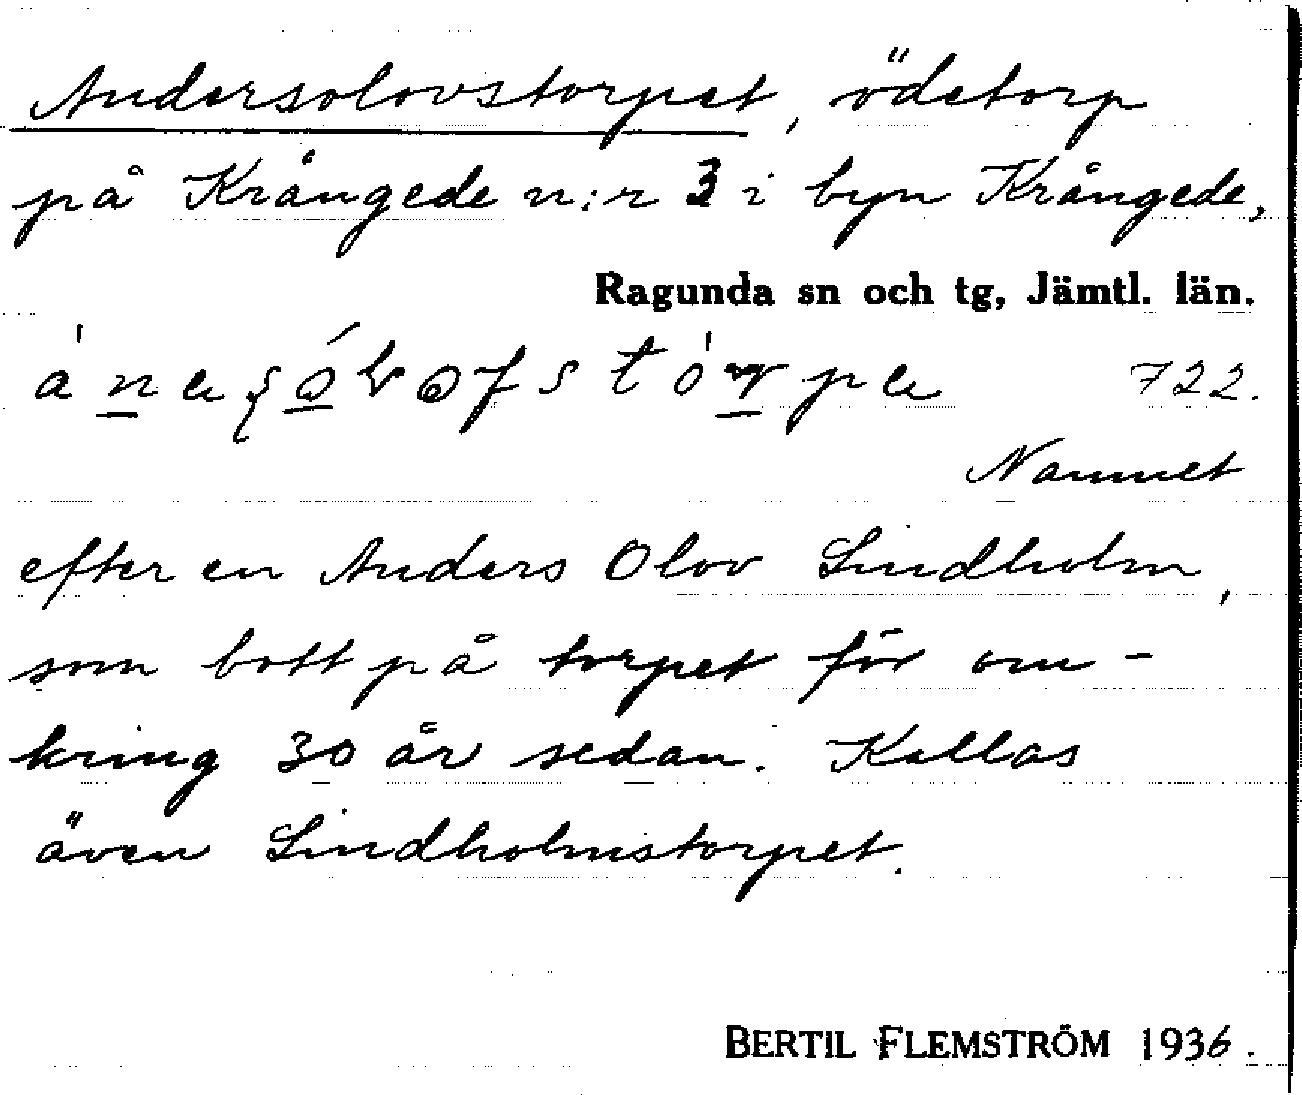 Andersolovstorpet, ödetorp
på Krångede n:r 3 i byn Krångede,
Ragunda sn och tg, Jämtl. län.
722.
Namnet
efter en Anders Olov Lindholm,
som bott på torpet för om-
kring 30 år sedan. Kallas
även Lindholmstorpet.
BERTIL FLEMSTRÖM 1936.